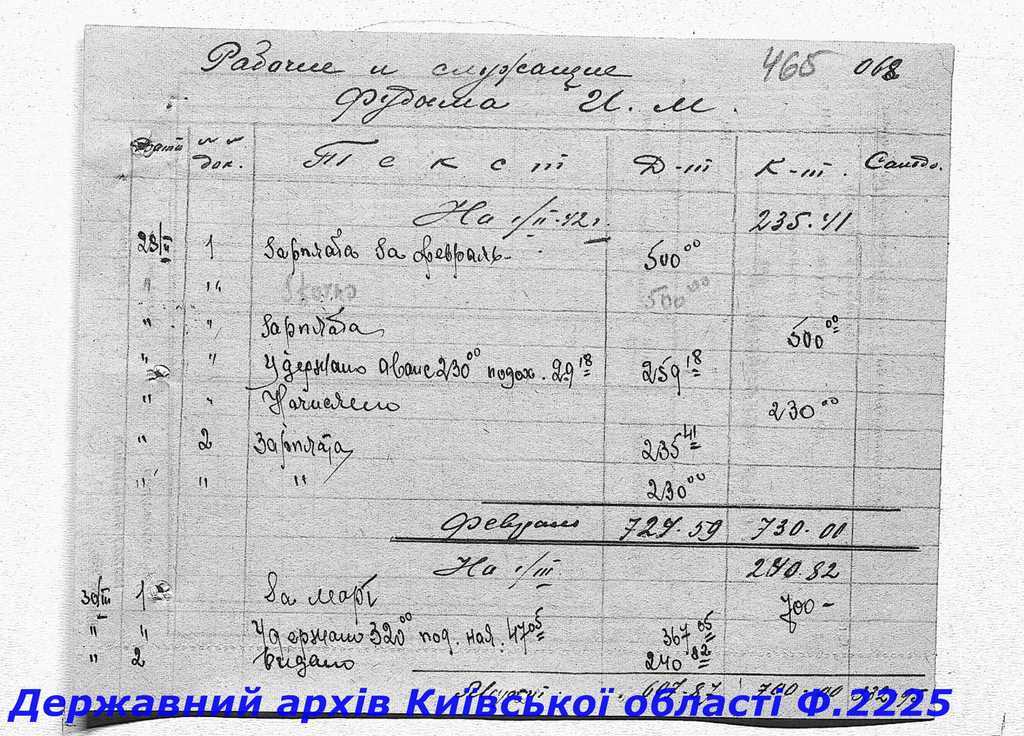 Рабочие и служащие 465 068
Фудыма И. М.
Дата №№ док. Текст Д-т К-т. Сальдо.
На 1/II-42г. 235.41
28/II 1 Зарплата за февраль- 500 00
" " Storno 500 00
" " Зарплата 500 00
" " Удержано Аванс 230 00 подох. 29 18 259 18
" " Начислено 230 00
" 2 Зарплата 235 41
" " " 230 00
724.59 730.00
На 1/III 240.82
30/III 1 За март 700-
" " Удержано 320 00 под. нал. 47 05 367 05
" 2 Выдано 240 82
607.87 700.00
Державний архів Київської області Ф.2225